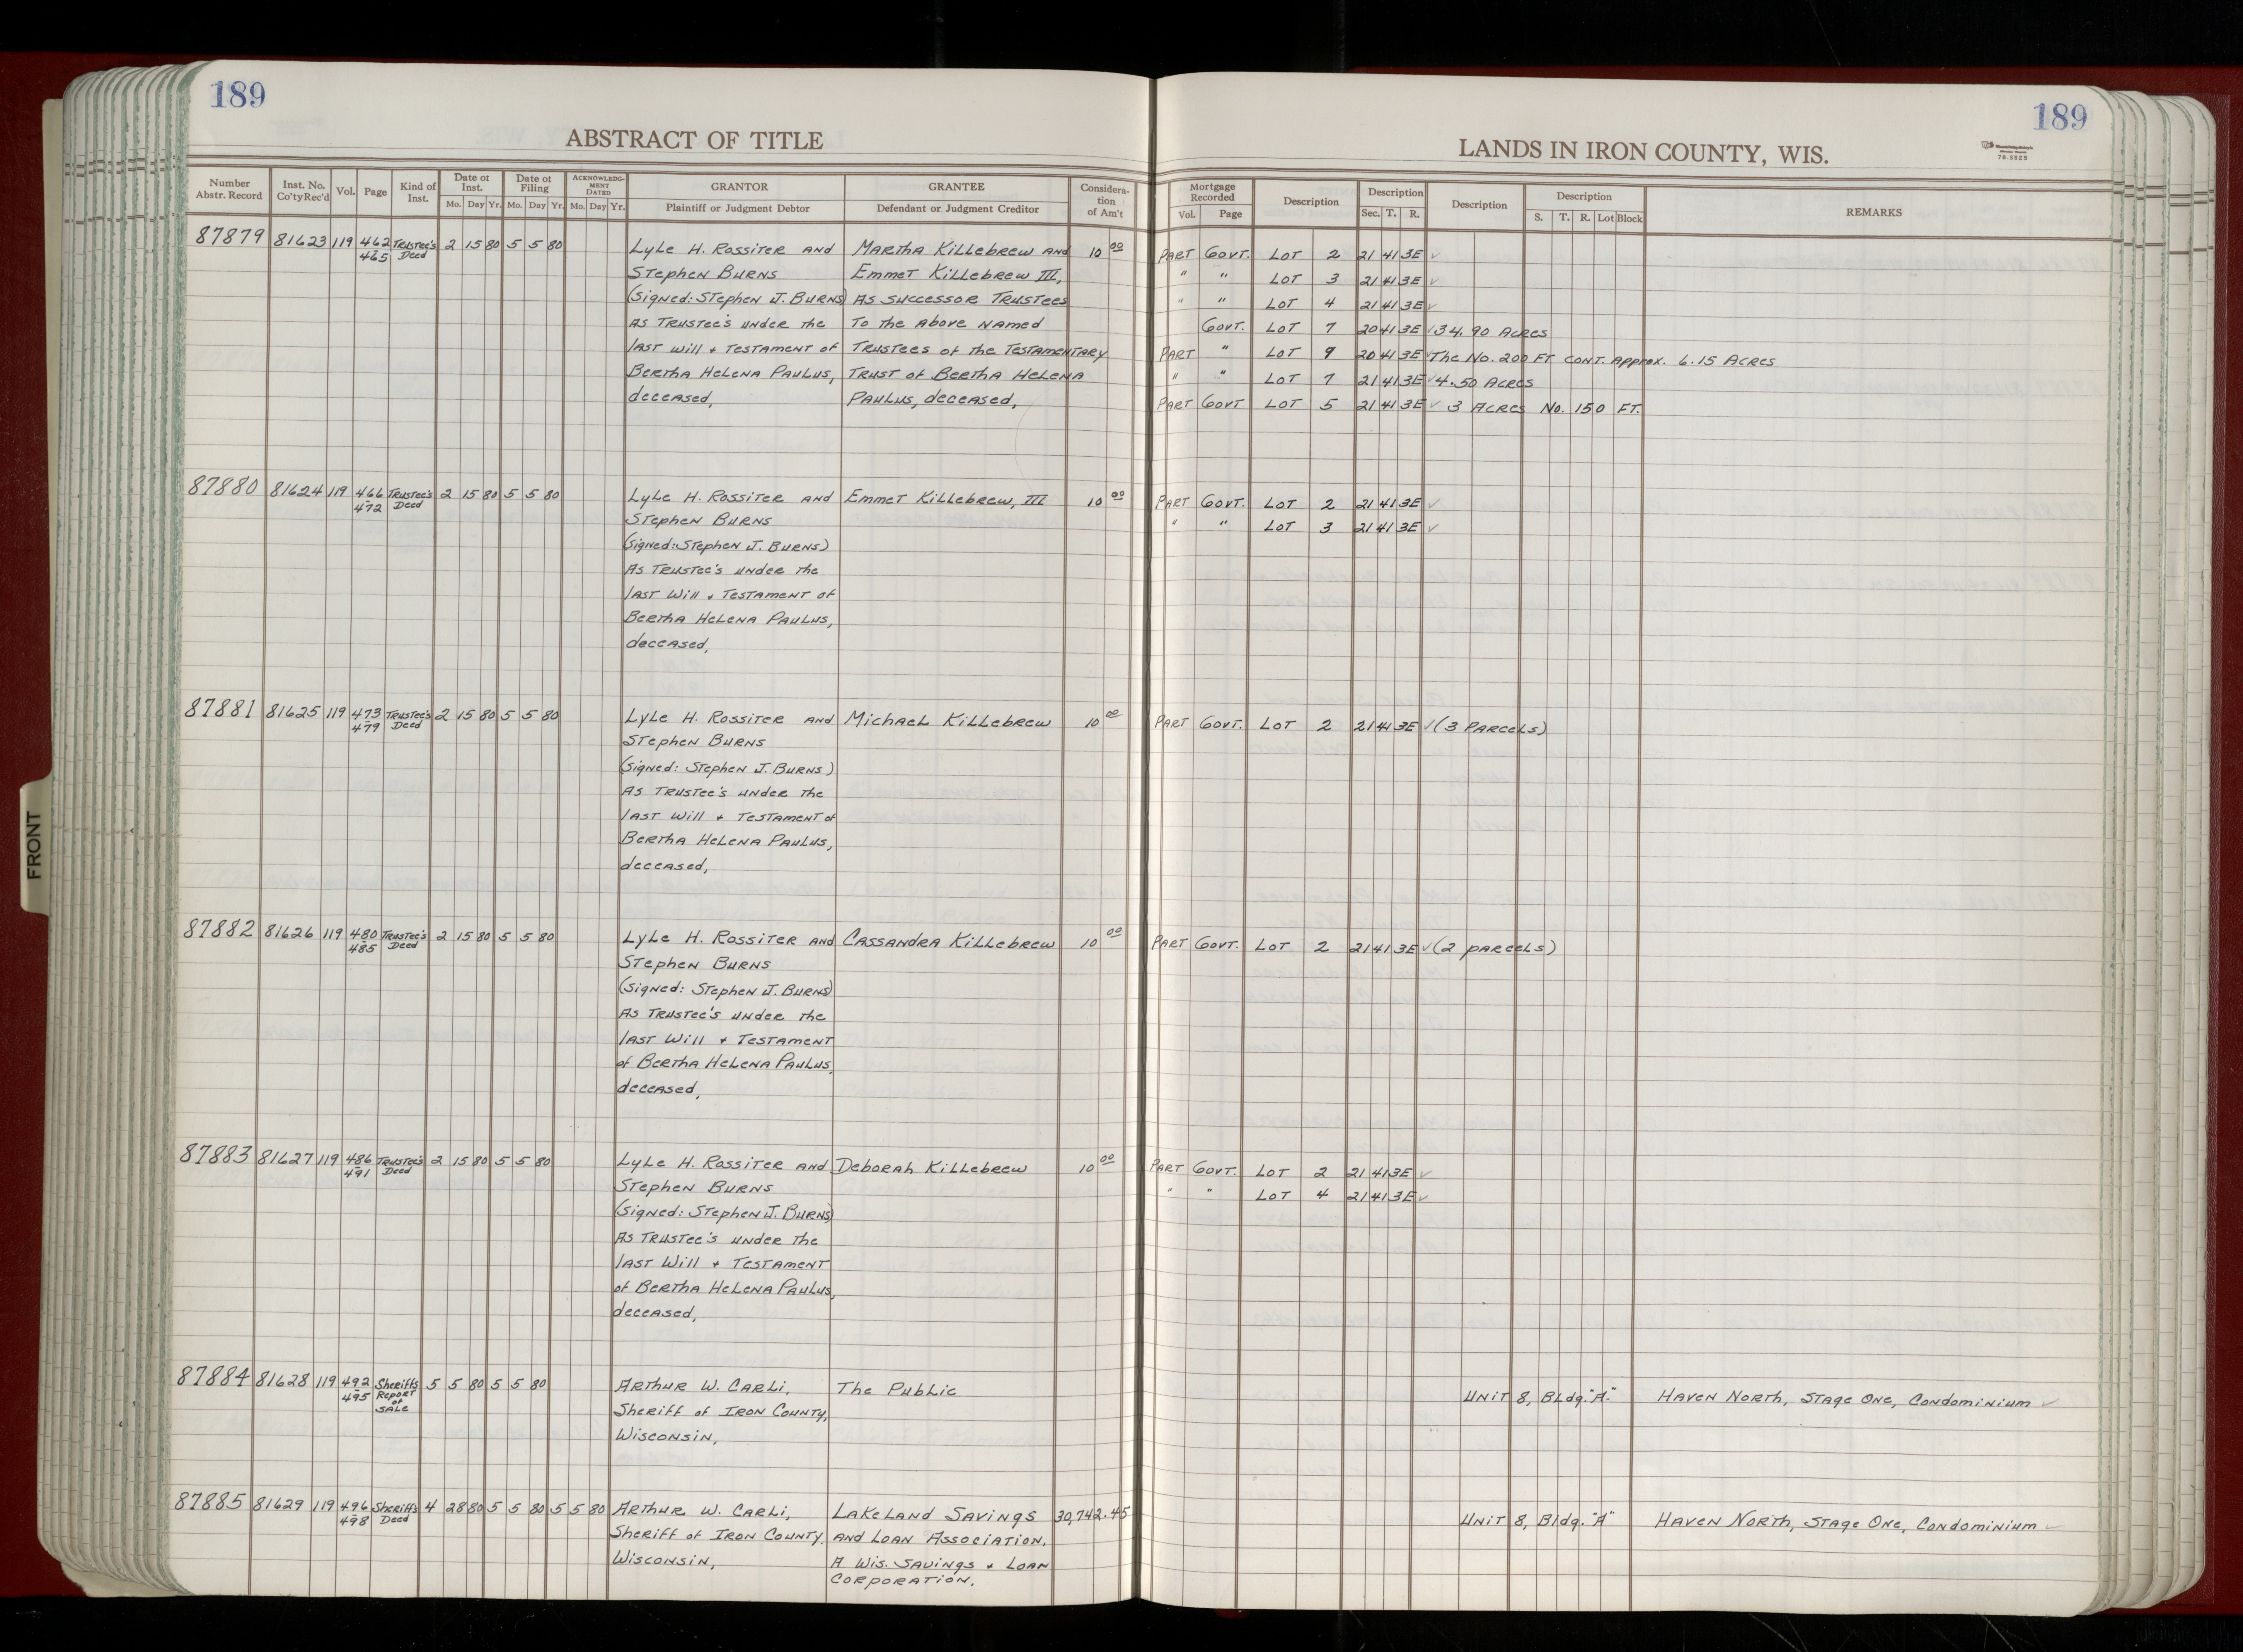 189
ABSTRACT OF TITLE
Number Abstr. Record | Inst. No. Co'ty Rec'd | Vol. | Page | Kind of Inst. | Date of Inst. Mo. Day Yr. | Date of Filing Mo. Day Yr. | ACKNOWLEDGMENT DATED Mo. Day Yr. | GRANTOR Plaintiff or Judgment Debtor | GRANTEE Defendant or Judgment Creditor | Consideration of Am't
189
LANDS IN IRON COUNTY, WIS.
76-3525
Mortgage Recorded Vol. Page | Description | Description Sec. T. R. | Description | Description S. T. R. Lot Block | REMARKS
87879 81623 119 462-465 Trustee's Deed 2 15 80 5 5 80 Lyle H. Rossiter and Martha Killebrew and 10 00 Part Govt. Lot 2 21 41 3E ✓
Stephen Burns Emmet Killebrew III, " " Lot 3 21 41 3E ✓
(Signed: Stephen J. Burns) As successor Trustees " " Lot 4 21 41 3E ✓
As Trustee's under the To the Above Named Govt. Lot 7 20 41 3E ✓ 34.90 Acres
last will + Testament of Trustees of the Testamentary Part " Lot 9 20 41 3E ✓ The No. 200 FT cont. Approx. 6.15 Acres
Bertha Helena Paulus, Trust of Bertha Helena " " Lot 7 21 41 3E ✓ 4.50 Acres
deceased, Paulus, deceased, Part Govt Lot 5 21 41 3E ✓ 3 Acres No. 150 FT.
87880 81624 119 466-472 Trustee's Deed 2 15 80 5 5 80 Lyle H. Rossiter and Emmet Killebrew, III 10 00 Part Govt. Lot 2 21 41 3E ✓
Stephen Burns " " Lot 3 21 41 3E ✓
(Signed: Stephen J. Burns)
As Trustee's under the
last Will + Testament of
Bertha Helena Paulus,
deceased,
87881 81625 119 473-479 Trustee's Deed 2 15 80 5 5 80 Lyle H. Rossiter and Michael Killebrew 10 00 Part Govt. Lot 2 21 41 3E ✓ (3 Parcels)
Stephen Burns
(Signed: Stephen J. Burns)
As Trustee's under the
last Will + Testament of
Bertha Helena Paulus,
deceased,
87882 81626 119 480-485 Trustee's Deed 2 15 80 5 5 80 Lyle H. Rossiter and Cassandra Killebrew 10 00 Part Govt. Lot 2 21 41 3E ✓ (2 parcels)
Stephen Burns
(Signed: Stephen J. Burns)
As Trustee's under the
last Will + Testament
of Bertha Helena Paulus,
deceased,
87883 81627 119 486-491 Trustee's Deed 2 15 80 5 5 80 Lyle H. Rossiter and Deborah Killebrew 10 00 Part Govt. Lot 2 21 41 3E ✓
Stephen Burns " " Lot 4 21 41 3E ✓
(Signed: Stephen J. Burns)
As Trustee's under the
last Will + Testament
of Bertha Helena Paulus,
deceased,
87884 81628 119 492-495 Sheriff's Report of Sale 5 5 80 5 5 80 Arthur W. Carli, The Public Unit 8, Bldg. "A." Haven North, Stage One, Condominium ✓
Sheriff of Iron County,
Wisconsin,
87885 81629 119 496-498 Sheriff's Deed 4 28 80 5 5 80 5 5 80 Arthur W. Carli, Lakeland Savings 30,742.45 Unit 8, Bldg. "A" Haven North, Stage One, Condominium ✓
Sheriff of Iron County, and Loan Association.
Wisconsin, A Wis. Savings + Loan
Corporation.
FRONT